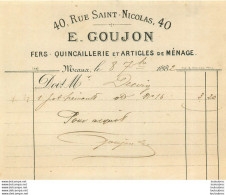 40, RUE SAINT-NICOLAS, 40
E. GOUJON
FERS - QUINCAILLERIE ET ARTICLES DE MÉNAGE.
Meaux, le 8 7bre 1882
Doit Mr
4 20
Pour acquit
Goujon